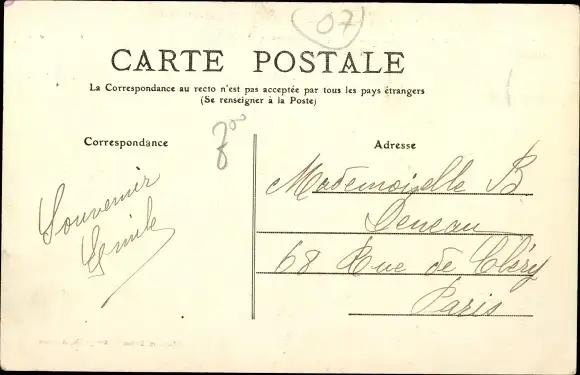 07
CARTE POSTALE
La Correspondance au recto n'est pas acceptée par tous les pays étrangers
(Se renseigner à la Poste)
Correspondance
Adresse
Souvenir
Emile
Mademoiselle B
Deneau
68 Rue de Cléry
Paris